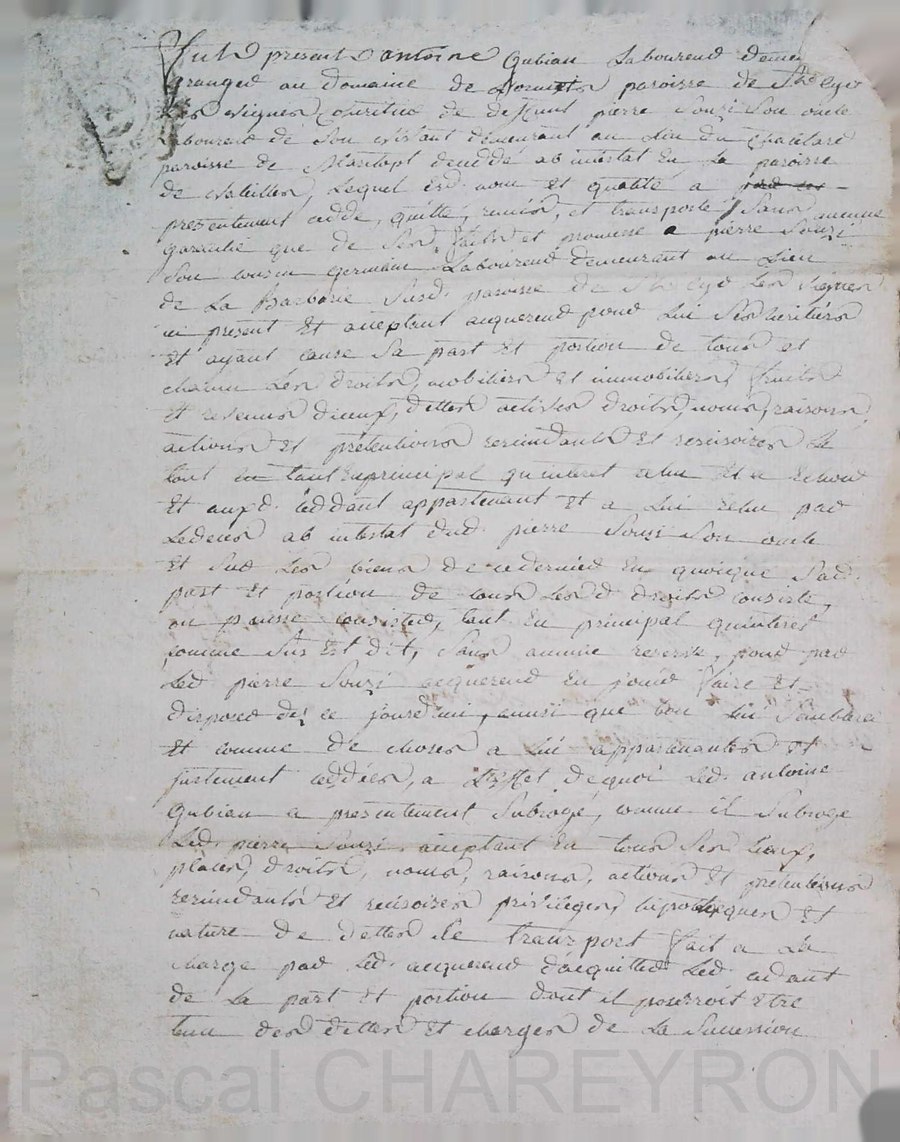 fut present antoine Gubian Laboureur
granger au domaine de paroisse de St Cyr
Les vignes Couritier de deffunt pierre Souzi Son oncle
Laboureur de Son vivant demeurant au Lieu du Chatelard
paroisse de deceddé ab intestat En La paroisse
de Lequel esd. nom et qualité a
presentement ceddé, quitté, remis, et transporté Sans aucune
garantie que de Ses faits et promesse a pierre Souzi
Son cousin germain Laboureur demeurant au Lieu
de La Barbarie Susd. paroisse de St Cyr Les vignes
ici present Et acceptant acquereur pour Lui Ses heritiers
Et ayant cause Sa part Et portion de tous et
chacun Les droits, mobiliers Et immobiliers, fruits
Et revenus d'iceux, dettes actives droits, noms, raisons,
actions Et pretentions rescindants Et rescisoires Le
tout en tant En principal qu'interet echu Et a echoir
Et aud. Ceddant appartenant Et a Lui echu par
Le deces ab intestat dud. pierre Souzi Son oncle
Et Sur Les biens de ce dernier En quoique Sad.
part Et portion de tous Lesd. droits consiste,
ou puisse consister, tant En principal qu'interet
comme Sus Est dit, Sans aucune reserve, pour par
Led. pierre Souzi acquereur En jouir faire Et
disposer dès ce jourd'hui, ainsi que bon Lui Semblera
Et comme de choses a Lui appartenantes Et
justement ceddées, a L'effet de quoi Led. antoine
Gubian a presentement Subrogé, comme il Subroge
Led. pierre Souzi acceptant En tous Ses Lieux,
places, droits, noms, raisons, actions Et pretentions
rescindants Et rescisoires privileges, hipotheques Et
nature de dettes Le transport fait a La
charge par Led. acquereur d'acquitter Led. cedant
de La part Et portion dont il pourroit Etre
tenu des dettes Et charges de La Succession
Pascal CHAREYRON